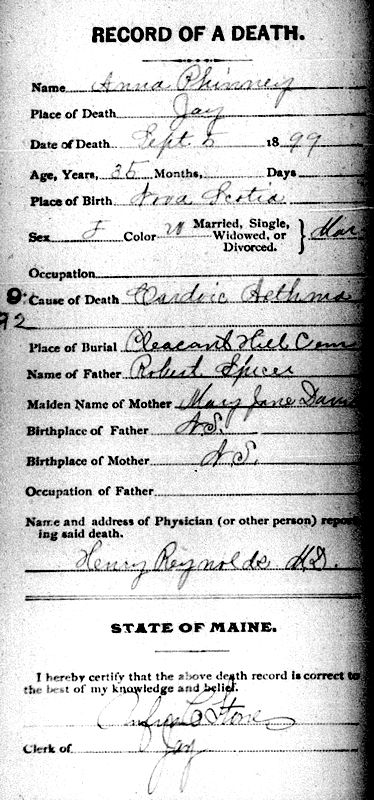 RECORD OF A DEATH.
Name Anna Phinney
Place of Death Jay
Date of Death Sept 5 1899
Age, Years, 35 Months, Days
Place of Birth Nova Scotia
Sex F Color W Married, Single, Widowed, or Divorced. } Mar
Occupation
9: Cause of Death Cardiac Asthma
92
Place of Burial Pleasant Hill Cem
Name of Father Robert Spicer
Maiden Name of Mother Mary Jane
Birthplace of Father N.S.
Birthplace of Mother N.S.
Occupation of Father
Name and address of Physician (or other person) report
ing said death.
Henry Reynolds M.D.
STATE OF MAINE.
I hereby certify that the above death record is correct to
the best of my knowledge and belief.
Stone
Clerk of Jay